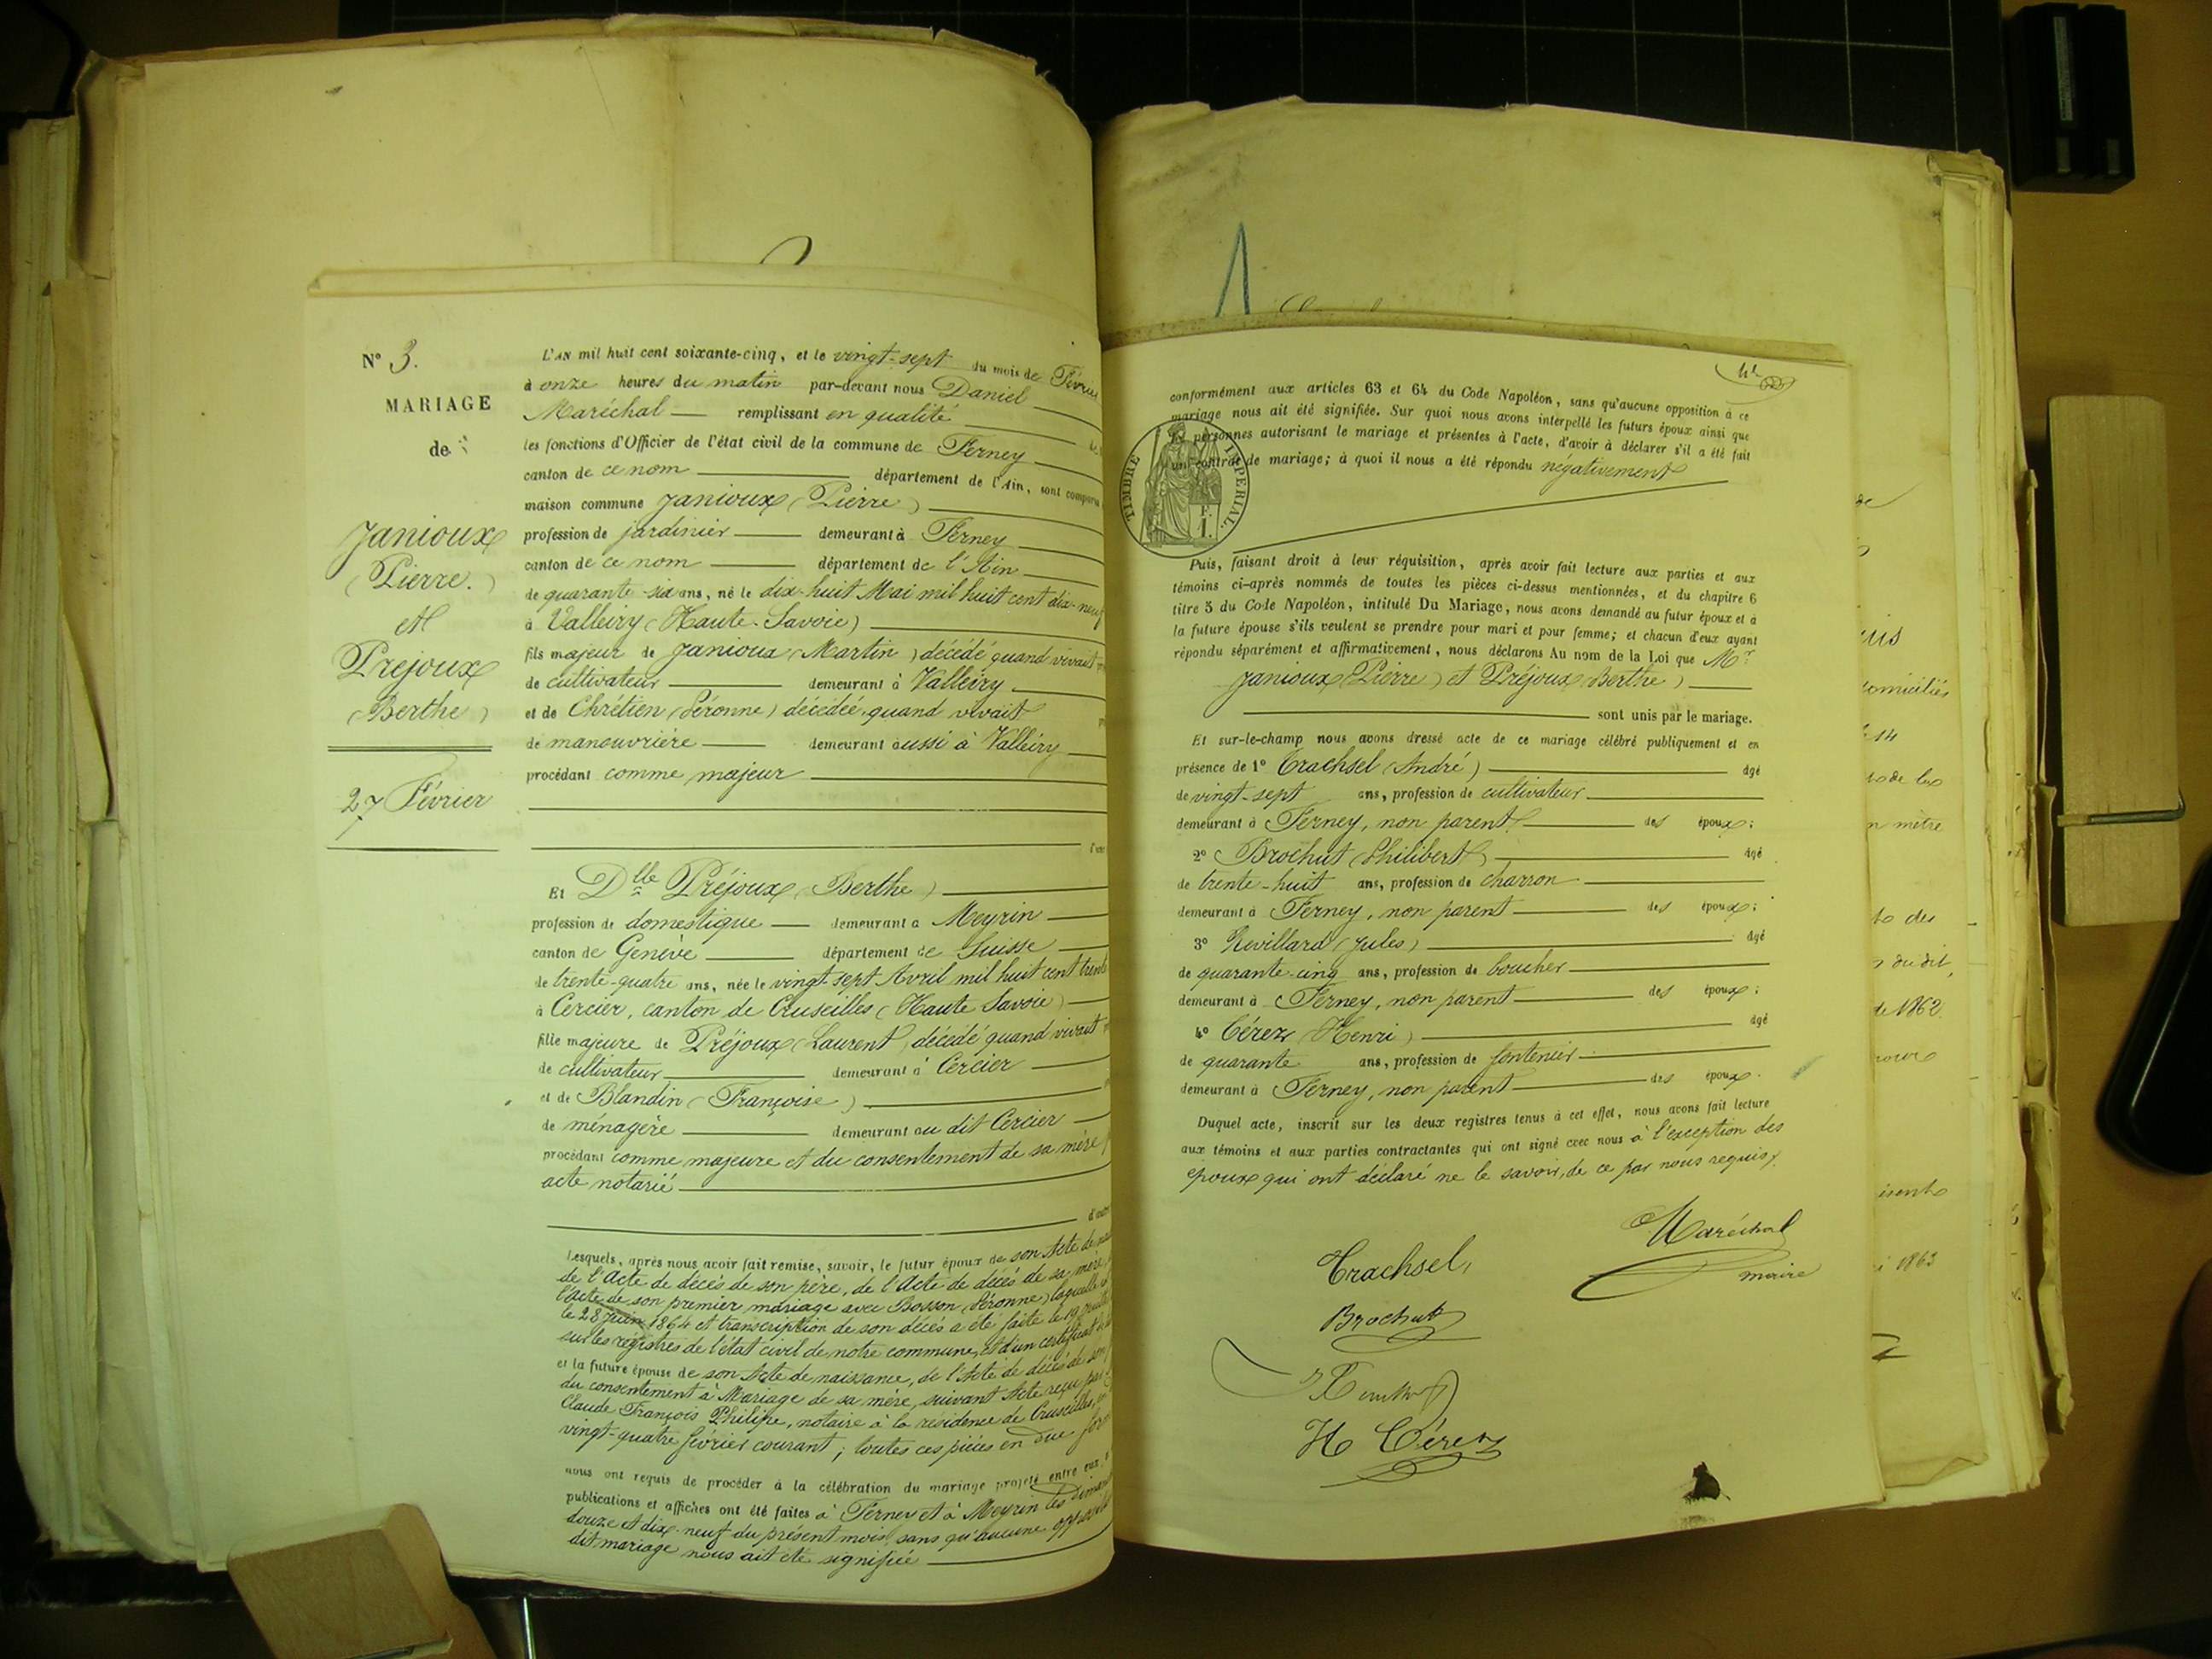 N° 3.
MARIAGE
de
Janioux
(Pierre.)
et
Préjoux
(Berthe)
27 Février
L'AN mil huit cent soixante-cinq, et le vingt-sept du mois de Février
à onze heures du matin par-devant nous Daniel
Maréchal remplissant en qualité
les fonctions d'Officier de l'état civil de la commune de Ferney
canton de ce nom département de l'Ain, sont comparus
maison commune Janioux (Pierre)
profession de jardinier demeurant à Ferney
canton de ce nom département de l'Ain
de quarante-six ans, né le dix-huit Mai mil huit cent dix-neuf
à Valleiry (Haute-Savoie)
fils majeur de Janioux (Martin) décédé quand vivait
de cultivateur demeurant à Valleiry
et de Chrétien (Péronne) décédée quand vivait
de manouvrière demeurant aussi à Valleiry
procédant comme majeur
Et Dlle Préjoux (Berthe)
profession de domestique demeurant à Meyrin
canton de Genève département de Suisse
de trente-quatre ans, née le vingt-sept Avril mil huit cent trente
à Cercier, canton de Cruseilles (Haute Savoie)
fille majeure de Préjoux (Laurent) décédé quand vivait
de cultivateur demeurant à Cercier
et de Blandin (Françoise)
de ménagère demeurant au dit Cercier
procédant comme majeure et du consentement de sa mère
acte notarié
Lesquels, après nous avoir fait remise, savoir, le futur époux de son Acte de
de l'Acte de décès de son père, de l'Acte de décès de sa mère,
l'Acte de son premier mariage avec Bosson (Péronne) laquelle
le 28 Juin 1864 et transcription de son décès a été faite le 19
sur les registres de l'état civil de notre commune, et d'un certificat
et la future épouse de son Acte de naissance, de l'Acte de décès de son
du consentement à Mariage de sa mère, suivant Acte reçu par
Claude François Philippe, notaire à la résidence de Cruseilles,
vingt-quatre février courant; toutes ces pièces en due forme
nous ont requis de procéder à la célébration du mariage projeté entre eux,
publications et affiches ont été faites à Ferney et à Meyrin les Dimanches
douze et dix-neuf du présent mois, sans qu'aucune opposition
dit mariage nous ait été signifiée
1
conformément aux articles 63 et 64 du Code Napoléon, sans qu'aucune opposition à ce
mariage nous ait été signifiée. Sur quoi nous avons interpellé les futurs époux ainsi que
personnes autorisant le mariage et présentes à l'acte, d'avoir à déclarer s'il a été fait
un contrat de mariage; à quoi il nous a été répondu négativement
TIMBRE IMPÉRIAL.
Puis, faisant droit à leur réquisition, après avoir fait lecture aux parties et aux
témoins ci-après nommés de toutes les pièces ci-dessus mentionnées, et du chapitre 6
titre 5 du Code Napoléon, intitulé Du Mariage, nous avons demandé au futur époux et à
la future épouse s'ils veulent se prendre pour mari et pour femme; et chacun d'eux ayant
répondu séparément et affirmativement, nous déclarons Au nom de la Loi que Mr
Janioux (Pierre) et Préjoux (Berthe)
sont unis par le mariage.
Et sur-le-champ nous avons dressé acte de ce mariage célébré publiquement et en
présence de 1° Trachsel (André) âgé
de vingt-sept ans, profession de cultivateur
demeurant à Ferney, non parent des époux;
2° Brochut (Philibert) âgé
de trente-huit ans, profession de charron
demeurant à Ferney, non parent des époux;
3° Revillard (Jules) âgé
de quarante-cinq ans, profession de boucher
demeurant à Ferney, non parent des époux;
4° Cérez (Henri) âgé
de quarante ans, profession de fontenier
demeurant à Ferney, non parent des époux.
Duquel acte, inscrit sur les deux registres tenus à cet effet, nous avons fait lecture
aux témoins et aux parties contractantes qui ont signé avec nous à l'exception des
époux qui ont déclaré ne le savoir, de ce par nous requis.
Maréchal
maire
Trachsel
Brochut
H Cérez
domiciliés
14
mètre
des
du dit
de 1862
1863